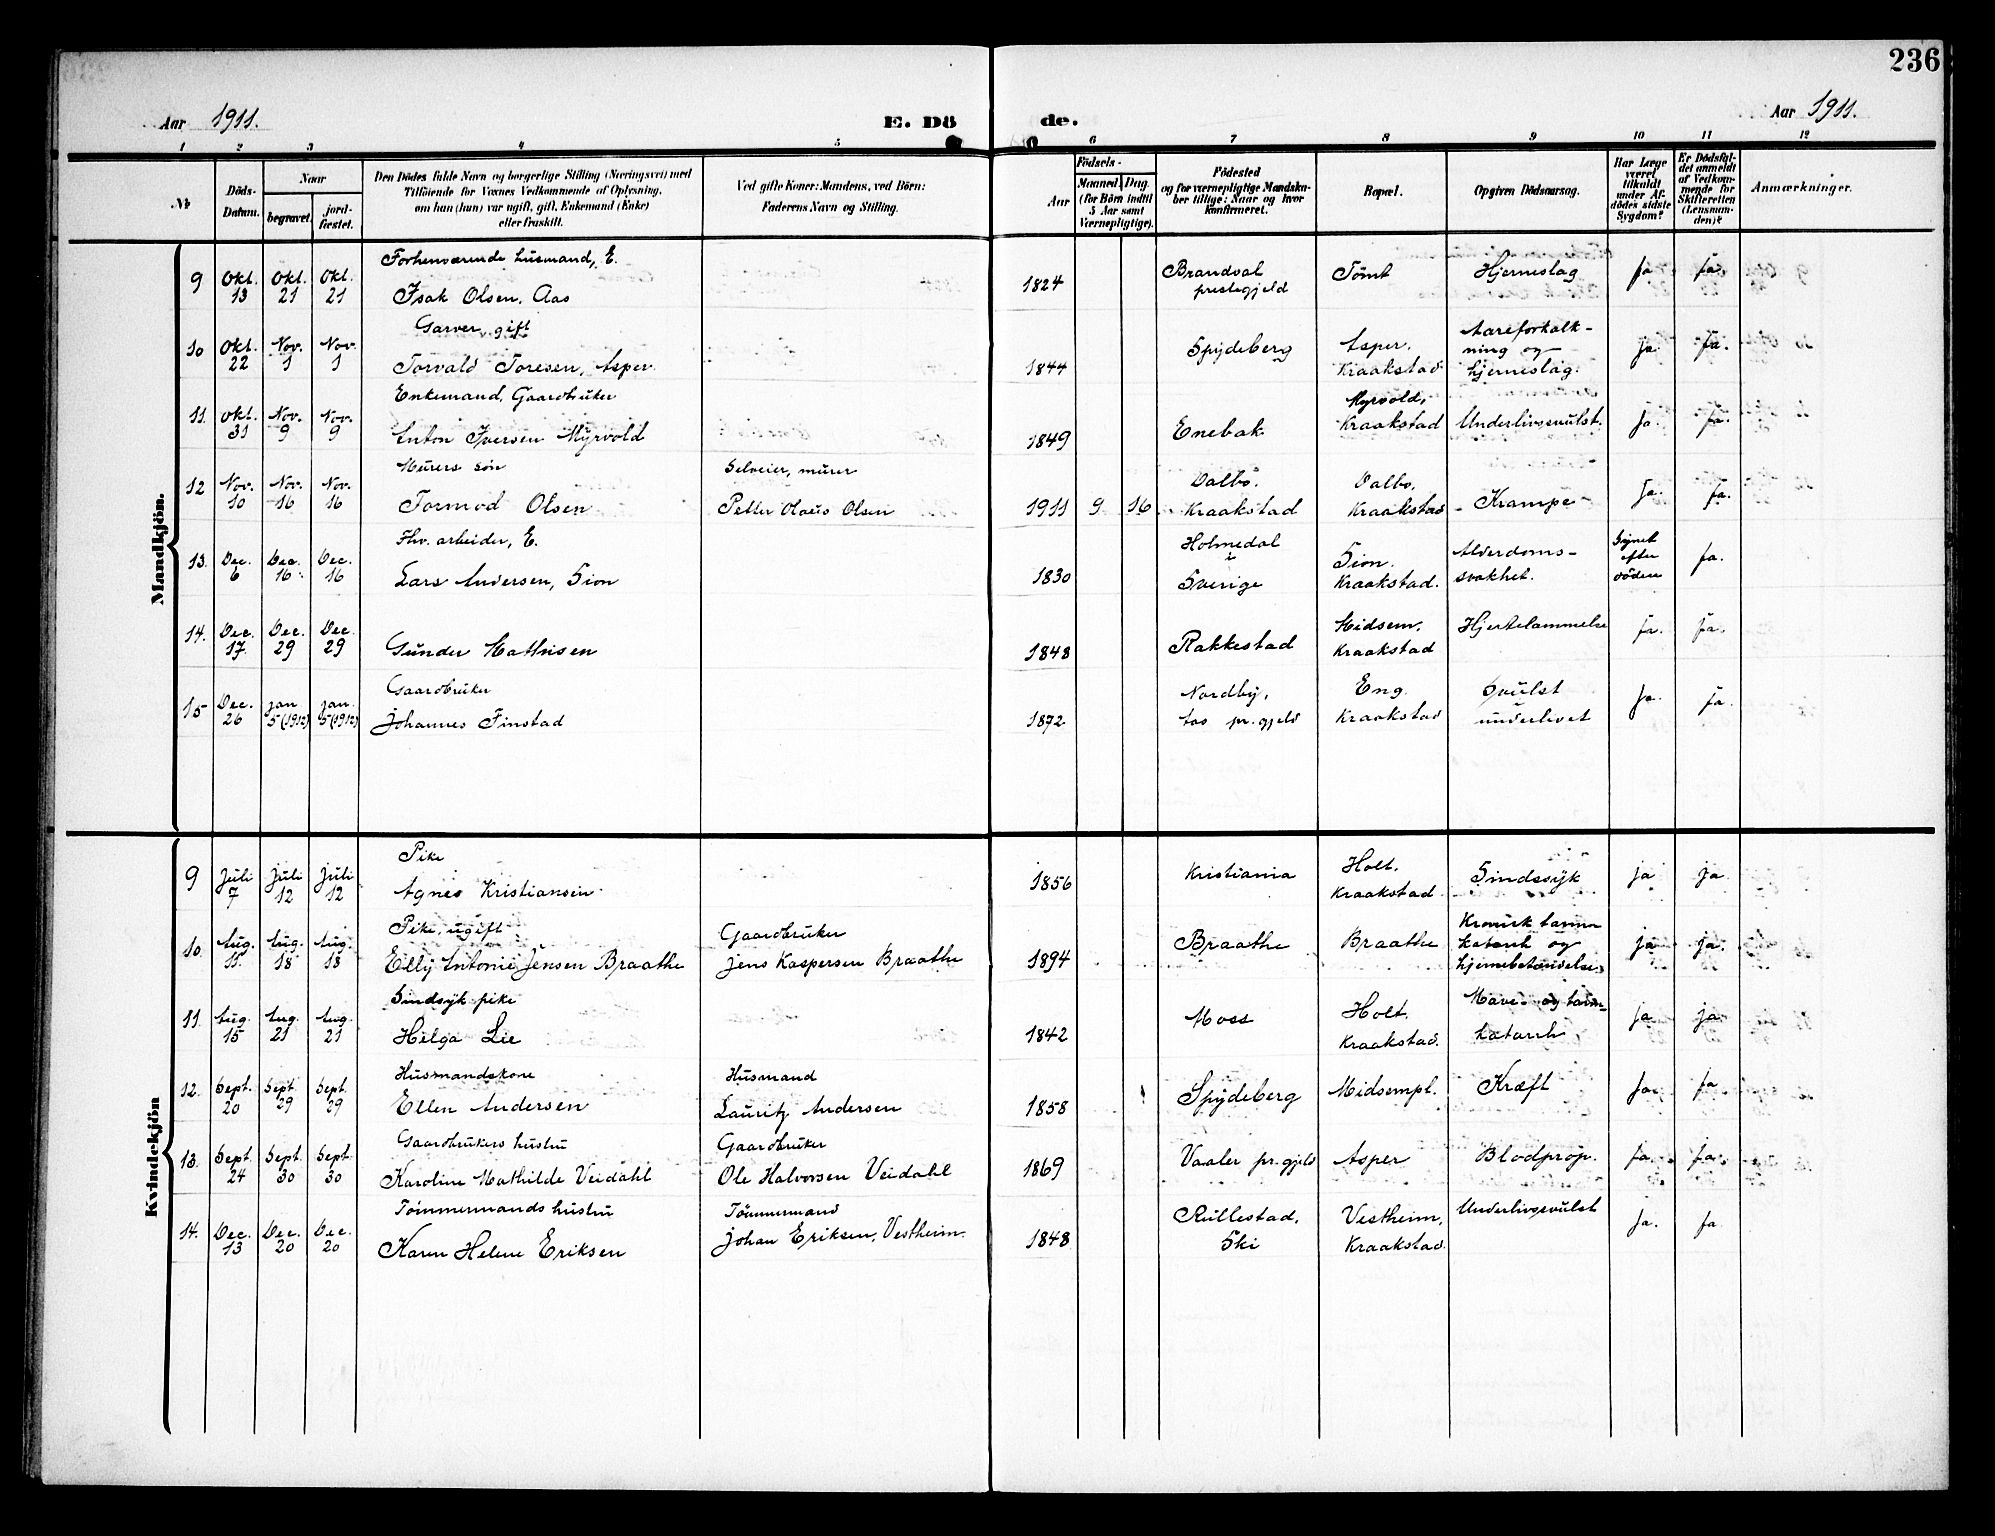 236
Aar 1911.
E. Dö
de.
Aar 1911.
1 2 3 4 5 6 7 8 9 10 11 12
No
Döds-Datum.
Naar
begravet.
jord-fæstet.
Den Dödes fulde Navn og borgerlige Stilling (Næringsvei) med
Tilföiende for Voxnes Vedkommende af Oplysning,
om han (hun) var ugift, gift, Enkemand (Enke)
eller fraskilt.
Ved gifte Koner: Mandens, ved Börn:
Faderens Navn og Stilling.
Födsels-
Aar
Maaned. Dag.
(for Börn indtil
5 Aar samt
Værnepligtige).
Födested
og for værnepligtige Mandska-
ber tillige: Naar og hvor
konfirmeret.
Bopæl.
Opgiven Dödsaarsag.
Har Læge
været
tilkaldt
under Af-
dödes sidste
Sygdom?
Er Dödsfal-
det anmeldt
af Vedkom-
mende for
Skifteretten
(Lensman-
den)?
Anmærkninger.
Mandkjön.
9 Okt. 13 Okt. 21 Okt. 21 Forhenværende husmand, E. Isak Olsen, Aas 1824 Brandval prestegjeld Tömt Hjerneslag Ja Ja.
10 Okt. 22 Nov. 1 Nov. 1 Garver, gift Torvald Toresen, Asper. 1844 Spydeberg Asper. Kraakstad Aareforkalk-ning og hjerneslag. Ja. Ja.
11. Okt. 31 Nov. 9 Nov. 9 Enkemand, Gaardbruker Anton Iversen Myrvold 1849 Enebak Myrvold, Kraakstad Underlivssvulst. Ja. Ja.
12 Nov. 10 Nov. 16 Nov. 16 Murers sön Tormod Olsen Selveier, murer Petter Olaus Olsen 1911 9 16 Dalbo. Kraakstad Dalbo, Kraakstad Krampe Ja. Ja.
13. Dec. 6 Dec. 16. Dec. 16 Fhv. arbeider, E. Lars Andersen, Sion 1830 Holmedal i Sverige Sion. Kraakstad. Alderdoms-svakhet. Synet efter döden Ja.
14. Dec. 17. Dec. 29 Dec. 29 Gunder Mathisen 1848 Rakkestad Midsem, Kraakstad Hjertelammelse Ja. Ja.
15 Dec. 26 jan 5 (1912) jan. 5 (1912) Gaardbruker Johannes Finstad 1872 Nordby, Aas pr.gjeld Eng. Kraakstad Svulst i underlivet Ja. Ja.
Kvindekjön
9 Juli 7 Juli 12 Juli 12 Pike Agnes Kristiansen 1856 Kristiania Holt. Kraakstad. Sindssyk Ja Ja.
10. Aug. 11. Aug. 18 Aug. 18 Pike, ugift Elly Antonie Jensen Braathe Gaardbruker Jens Kaspersen Braathe 1894 Braathe Braathe Kronisk tarm-katarrh og hjernebetændelse. Ja Ja.
11. Aug. 15 Aug. 21 Aug. 21 Sindsyk pike Helga Lie 1842 Moss Holt, Kraakstad. Mave- og tarm-katarrh. Ja Ja
12. Sept. 20 Sept. 29 Sept. 29 Husmandskone Ellen Andersen Husmand Lauritz Andersen 1858 Spydeberg Midsempl. Kræft Ja. Ja
13. Sept. 24 Sept. 30 Sept. 30 Gaardbrukers hustru Karoline Mathilde Veidahl Gaardbruker Ole Halvorsen Veidahl 1869 Vaaler pr.gjeld Asper Blodprop. Ja. Ja.
14. Dec. 13 Dec. 20 Dec. 20 Tömmermands hustru Karen Helene Eriksen Tömmermand Johan Eriksen, Vestheim. 1848 Rullestad, Ski Vestheim, Kraakstad. Underlivssvulst Ja. Ja.